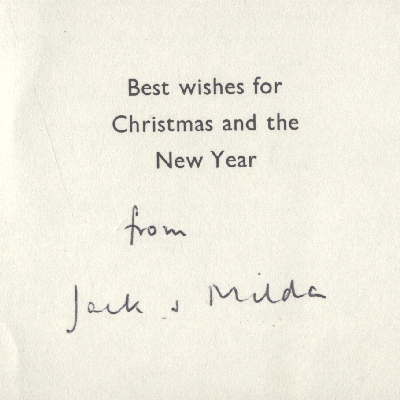 Best wishes for
Christmas and the
New Year
from
Jack & Milda